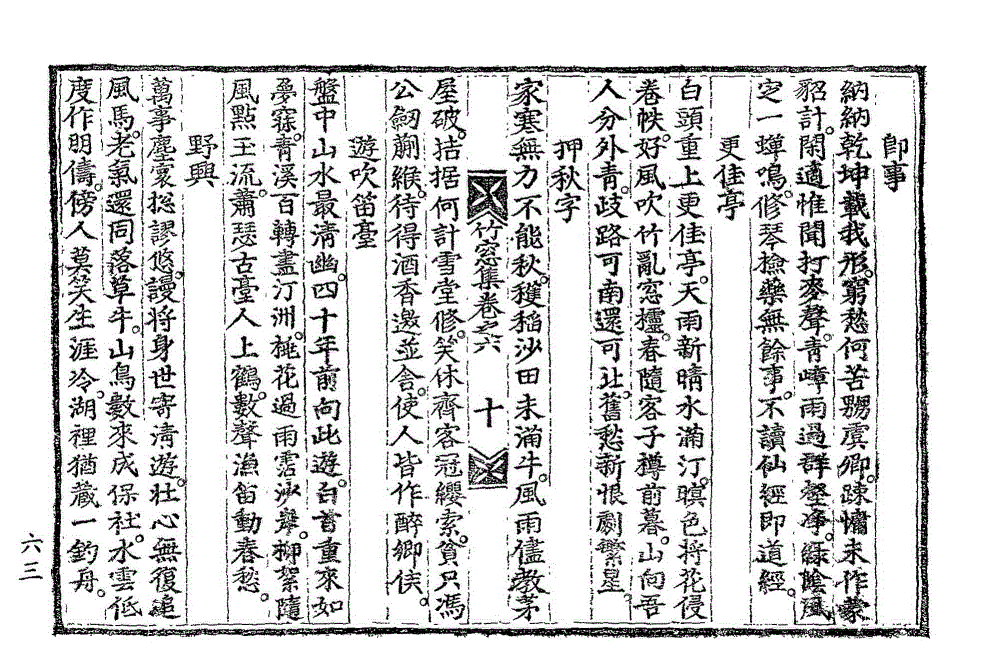 即事
納納乾坤載我形。窮愁何苦嬲虞卿。疎慵未作蒙
貂計。閑適惟聞打麥聲。青嶂雨過群壑淨。綠陰風
定一蟬鳴。修琴檢藥無餘事。不讀仙經即道經。
更佳亭
白頭重上更佳亭。天雨新晴水滿汀。暝色將花侵
卷帙。好風吹竹亂窓欞。春隨客子樽前暮。山向吾
人分外青。歧路可南還可北。舊愁新恨劇繁星。
押秋字
家寒無力不能秋。穫稻沙田未滿牛。風雨儘教茅
竹窓集卷之六 十
屋破。拮据何計雪堂修。笑休齊客冠纓索。貧只馮
公劒蒯緱。待得酒香邀並舍。使人皆作醉鄉侯。
遊吹笛臺
盤中山水最淸幽。四十年前向此遊。白首重來如
夢寐。靑溪百轉盡汀洲。桃花過雨霑沙岸。柳絮隨
風點玉流。蕭瑟古臺人上鶴。數聲漁笛動春愁。
野興
萬事塵寰揔謬悠。謾將身世寄淸遊。壯心無復追
風馬。老氣還同落草牛。山鳥數來成保社。水雲低
度作明儔。傍人莫笑生涯冷。湖裡猶藏一釣舟。
六三